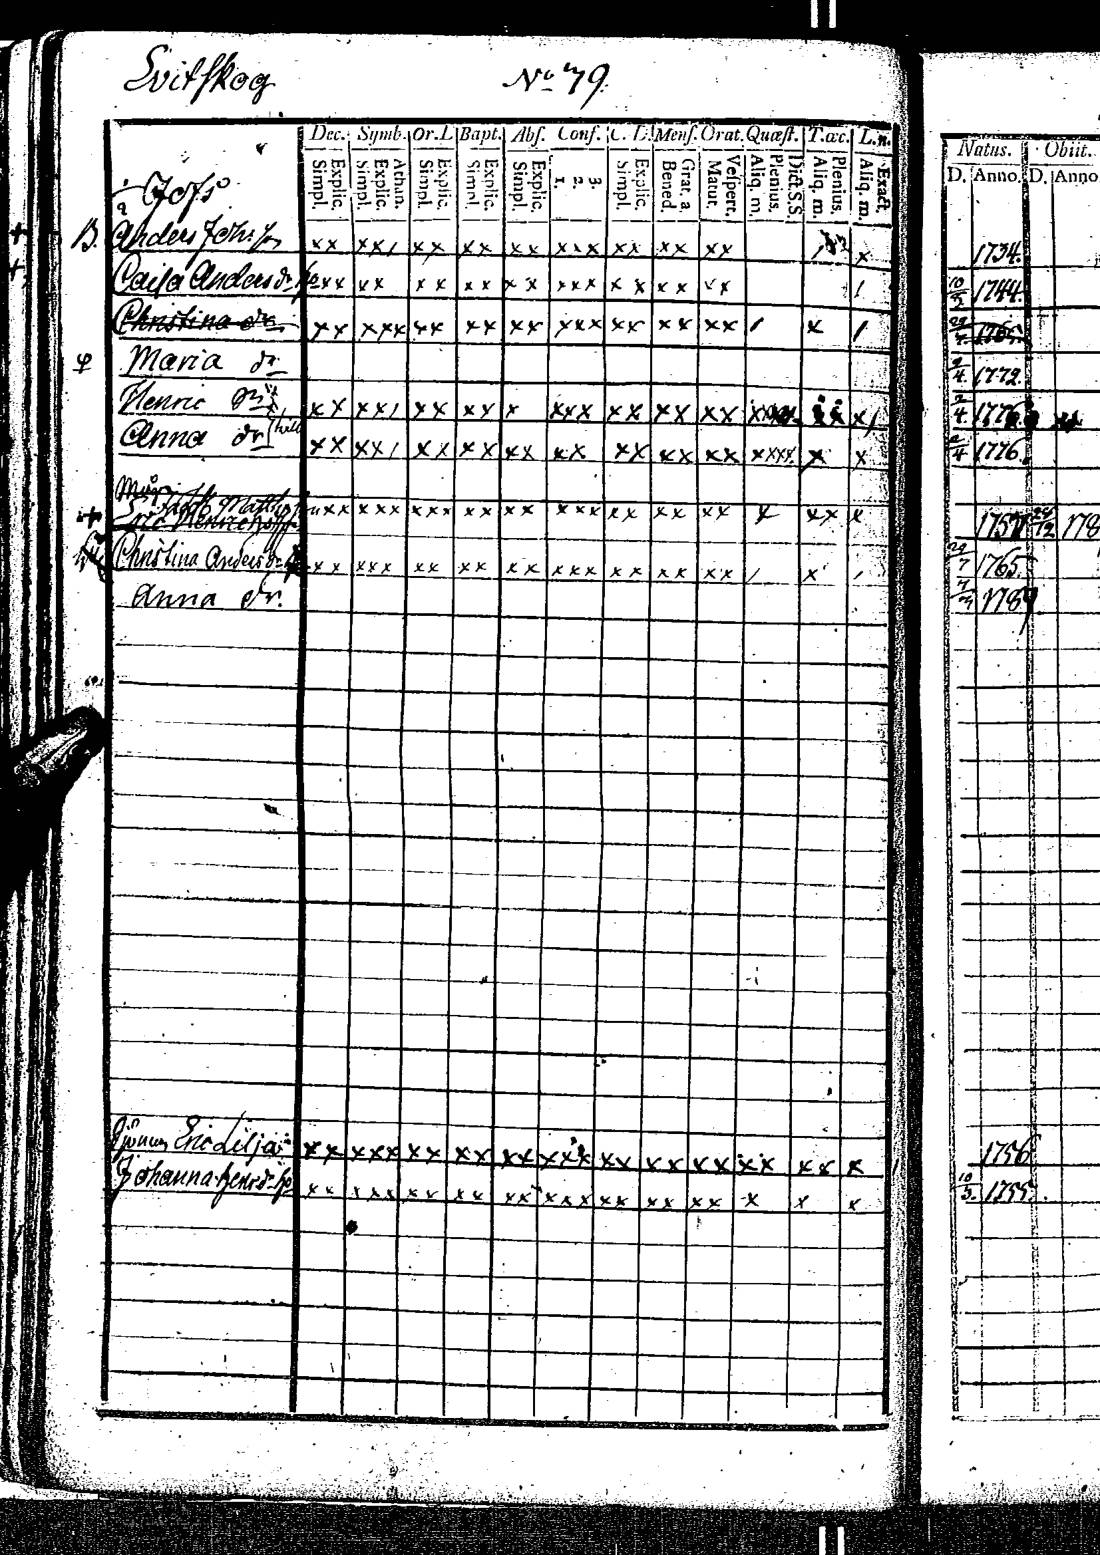 Svitskog No 79.
Dec. Symb. Or. D Bapt. Abs. Conf. C. D. Mens. Orat. Quæst. T.œc. L.n.
Simpl. Explic. Simpl. Explic. Athan. Simpl. Explic. Simpl. Explic. Simpl. Explic. 1. 2. 3. Simpl. Explic. Bened. Grat. a. Matut. Vespert. Aliq. m. Plenius. Dict. S.S. Aliq. m. Plenius. Aliq. m. Exact.
Natus. Obiit.
D. Anno. D. Anno
B. Anders Joh: xx xx/ xx xx xx xxx xx xx xx x 1734.
Caisa Anders dr xx xx xx xx xx xxx xx xx xx / 10/3 1744.
Christina dr xx xxx xx xx xx xxx xx xx xx / x / 1765
Maria dr 1772.
Henric xx xx/ xx xx x xxx xx xx xx x/ 4 177
Anna dr xx xx/ xx xx xx xx xx xx xx xxxx x x 2/4 1776.
Matth xxx xxx xx xx xxx xx xx xx x xx x 175 24/12 178
Christina Anders dr xx xxx xx xx xx xxx xx xx xx / x / 29/7 1765.
Anna dr. 1789
Eric Lilja xx xxx xx xx xx xxx xx xx xx xx xx x 1756
Johanna xx xxx xx xx xx xxx xx xx xx x x x 10/3. 1755.